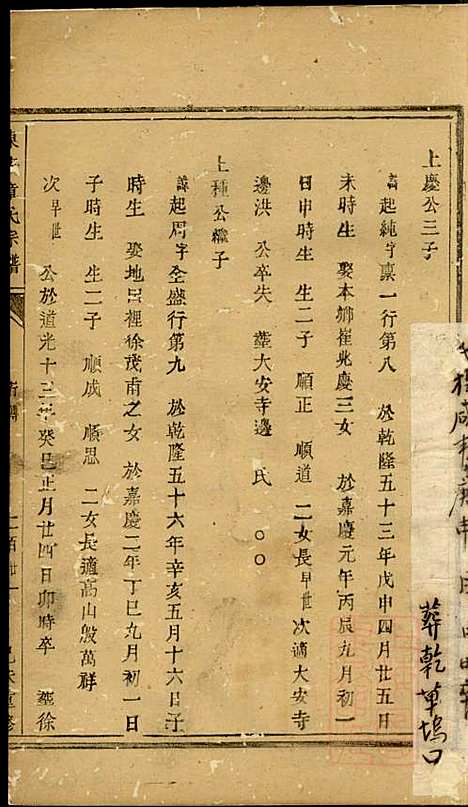 上慶公三子
諱起純字稟一行第八 於乾隆五十三年戊申四月廿五日
未時生 娶本鄉崔兆慶三女 於嘉慶元年丙辰九月初一
日申時生 生二子 順正 順道 二女長早世次適大安寺
邊洪 公卒失 塟大安寺邊 氏 〇〇
上種公繼子
諱起周字全盛行第九 於乾隆五十六年辛亥五月十六日子
時生 娶地田裡徐茂甫之女 於嘉慶二年丁巳九月初一日
子時生 生二子 順成 順思 二女長適高山殷萬祥
次早世 公於道光十三年癸巳正月廿四日卯時卒 塟徐
氏宗譜
葬乾草塢口